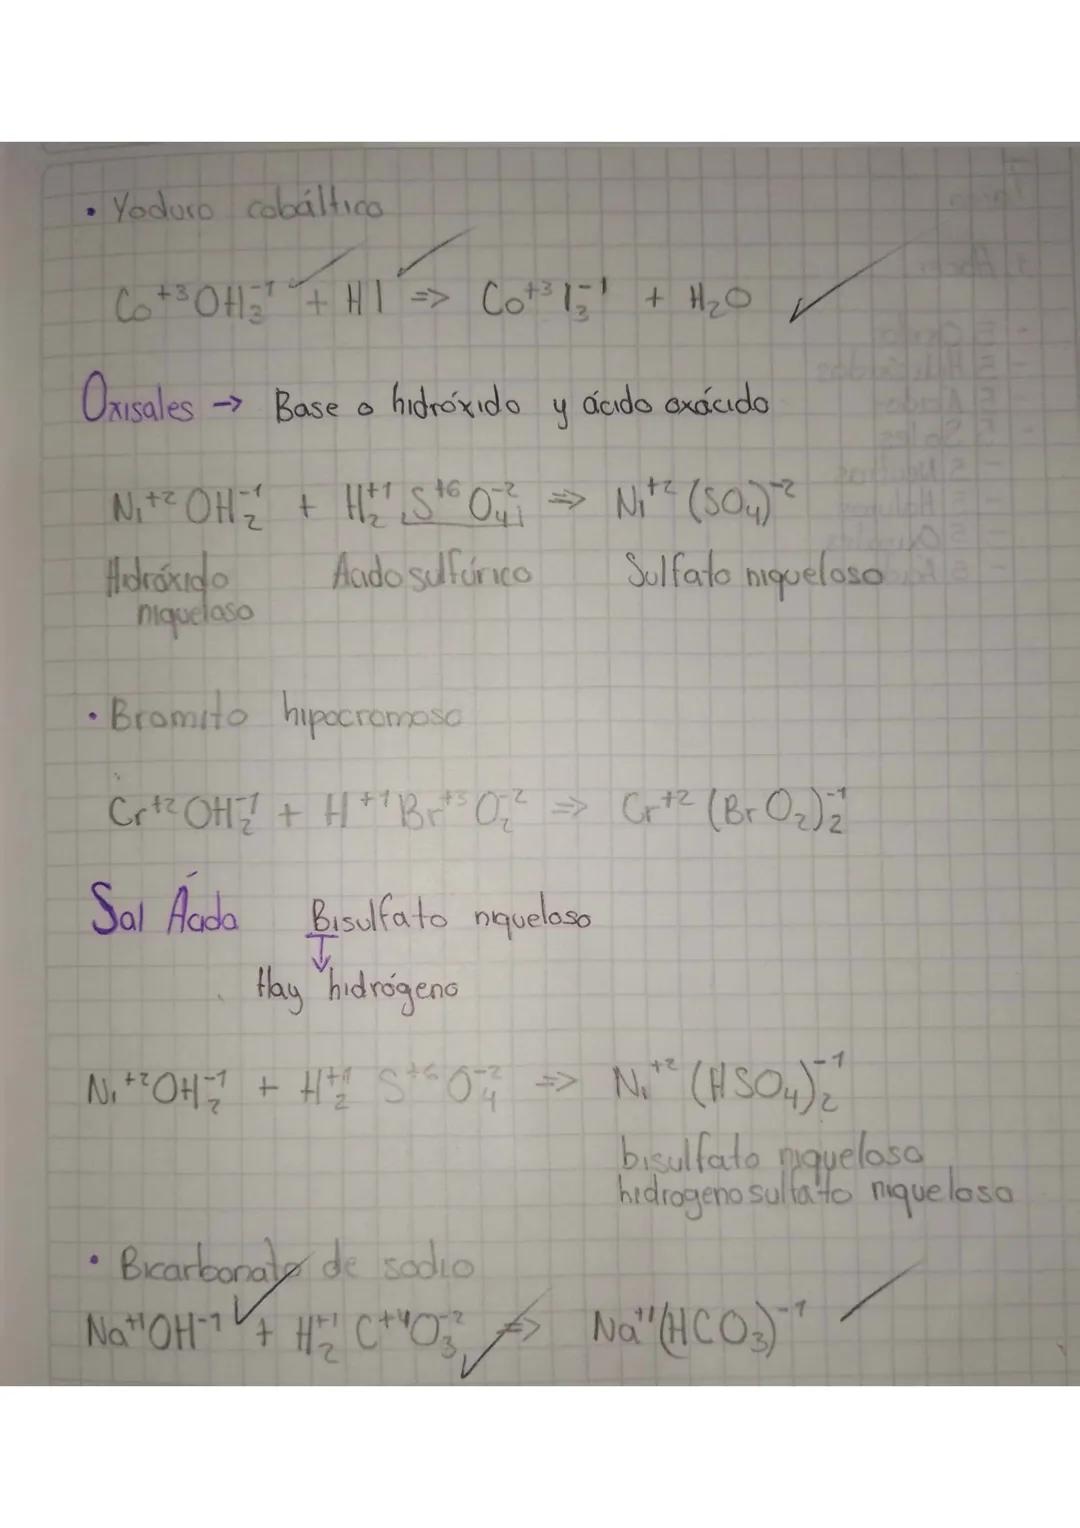 • Yoduro cobáltico
Co⁺³OH₃⁻¹ + HI => Co⁺³I₃⁻¹ + H₂O
Oxisales → Base o hidróxido y ácido oxácido
Ni⁺²OH₂⁻¹ + H₂⁺¹S⁺⁶O₄⁻² => Ni⁺²(SO₄)⁻²
Hidróxido Acido sulfúrico Sulfato niqueloso
niqueloso
• Bromito hipocromoso
Cr⁺²OH₂⁻¹ + H⁺¹Br⁺³O₂⁻² => Cr⁺²(BrO₂)₂⁻¹
Sal Ácida Bisulfato niqueloso
Hay hidrógeno
Ni⁺²OH₂⁻¹ + H₂⁺¹S⁺⁶O₄⁻² => Ni⁺²(HSO₄)₂⁻¹
bisulfato niqueloso
hidrogenosulfato niqueloso
• Bicarbonato de sodio
Na⁺¹OH⁻¹ + H₂⁺¹C⁺⁴O₃⁻² => Na⁺¹(HCO₃)⁻¹